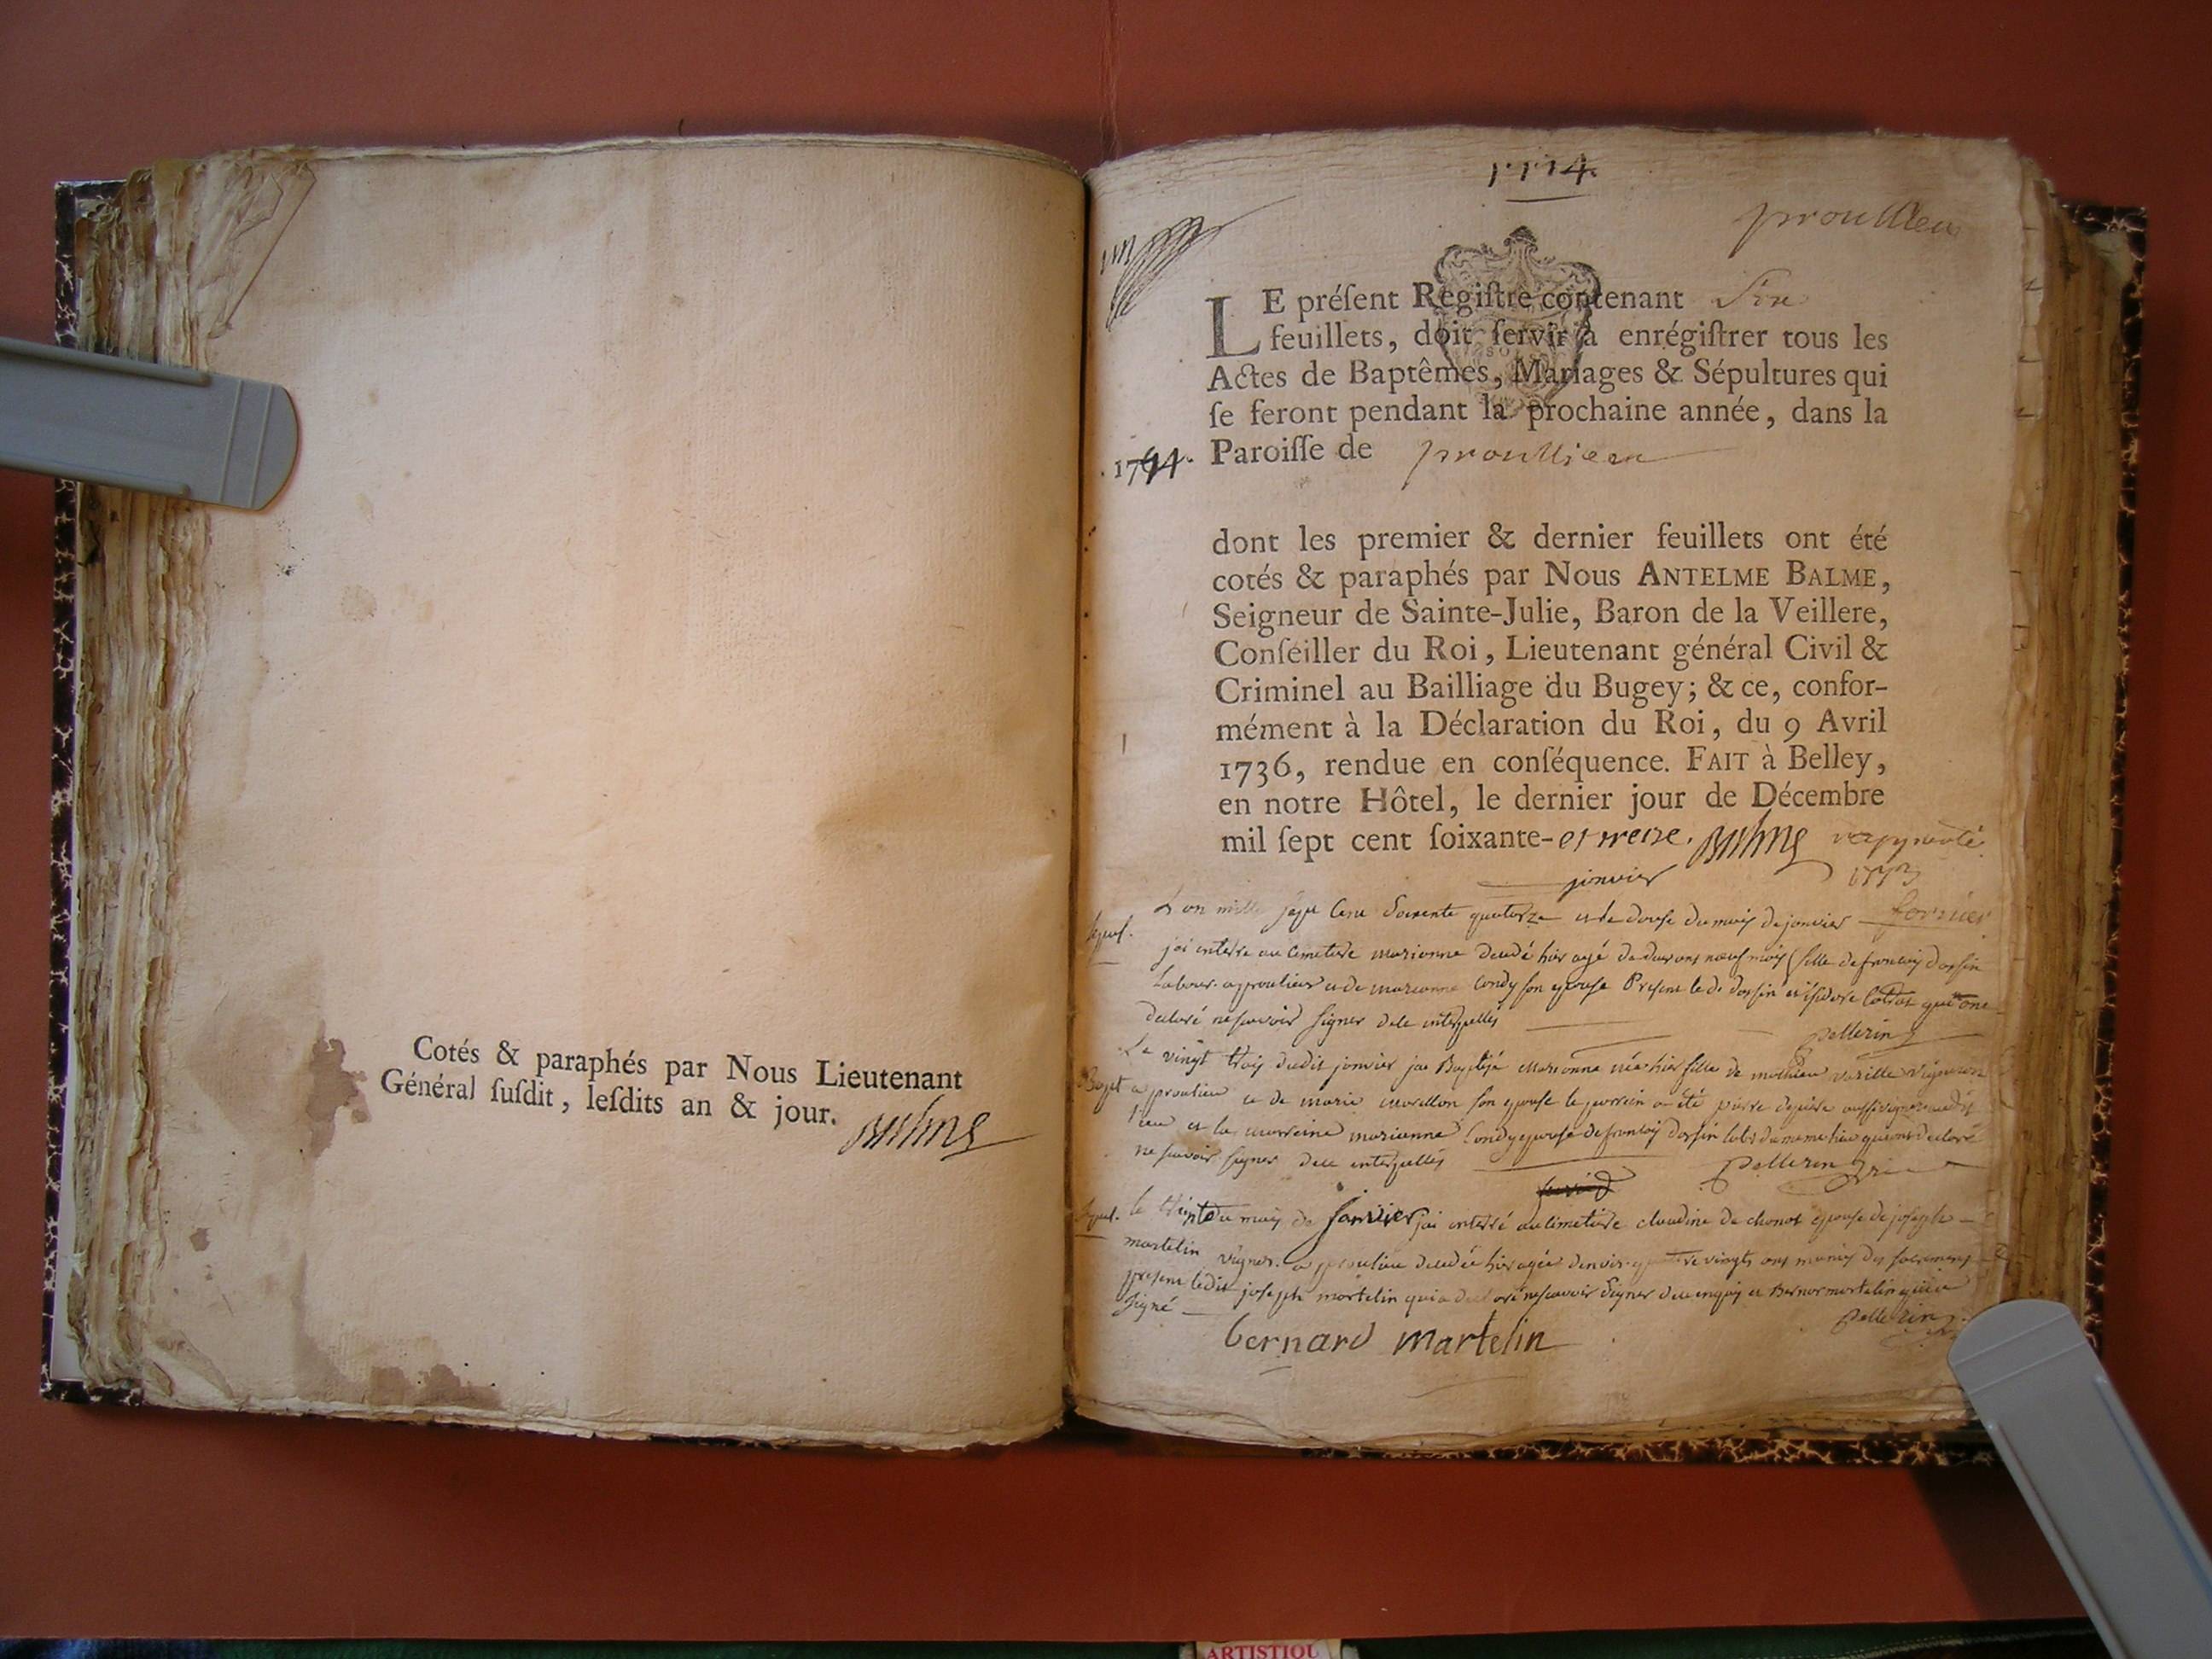 Cotés & paraphés par Nous Lieutenant
Général ſuſdit, leſdits an & jour.
Balme
1774.
proullieu
LE préſent Regiſtre contenant Six
feuillets, doit ſervir à enrégiſtrer tous les
Actes de Baptêmes, Mariages & Sépultures qui
ſe feront pendant la prochaine année, dans la
1774. Paroiſſe de proullieu
dont les premier & dernier feuillets ont été
cotés & paraphés par Nous ANTELME BALME,
Seigneur de Sainte-Julie, Baron de la Veillere,
Conſeiller du Roi, Lieutenant général Civil &
Criminel au Bailliage du Bugey; & ce, confor-
mément à la Déclaration du Roi, du 9 Avril
1736, rendue en conſéquence. FAIT à Belley,
en notre Hôtel, le dernier jour de Décembre
mil ſept cent ſoixante-et treize. Balme
janvier 1773
L'an mille sept cent soixente quatorze et le douse du mois de janvier
j'ai interré au cimetiere marianne decedé hier agé de deux ans neuf mois fille de francois dossin
labour. a proulieu et de marianne Condy son epouse Present le dt dossin et isidore que ont
declaré ne scavoir signer de ce interpellés
pellerin
Le vingt trois dudit janvier jai Baptisé marianne née hier fille de mathieu varille vigneron
Bapt. a proulieu et de marie morellon son epouse le parrein a été pierre aussi vigneron audit
lieu et la marreine marianne Condy epouse de francois dossin labr du meme lieu qui ont declaré
ne scavoir signer de ce interpellés
pellerin
le trente du mois de janvier jai interré au cimetiere claudine de chanot epouse de joseph
martelin vigner. a proulieu decedée hier agée denvir. quatre vingts ans munies des sacremens
present ledit joseph martelin qui a declaré ne scavoir signer de ce enquis et Bernar martelin qui a
signé
pellerin
bernard martelin
ARTISTIQU